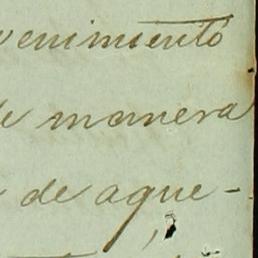 venimiento
de manera
de aque-